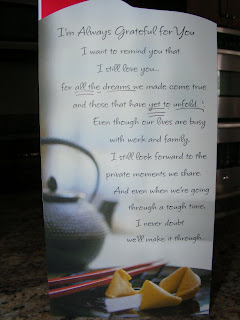 I'm Always Grateful for You
I want to remind you that
I still love you...
for all the dreams we made come true
and those that have yet to unfold !
Even though our lives are busy
with work and family,
I still look forward to the
private moments we share.
And even when we're going
through a tough time,
I never doubt
we'll make it through...